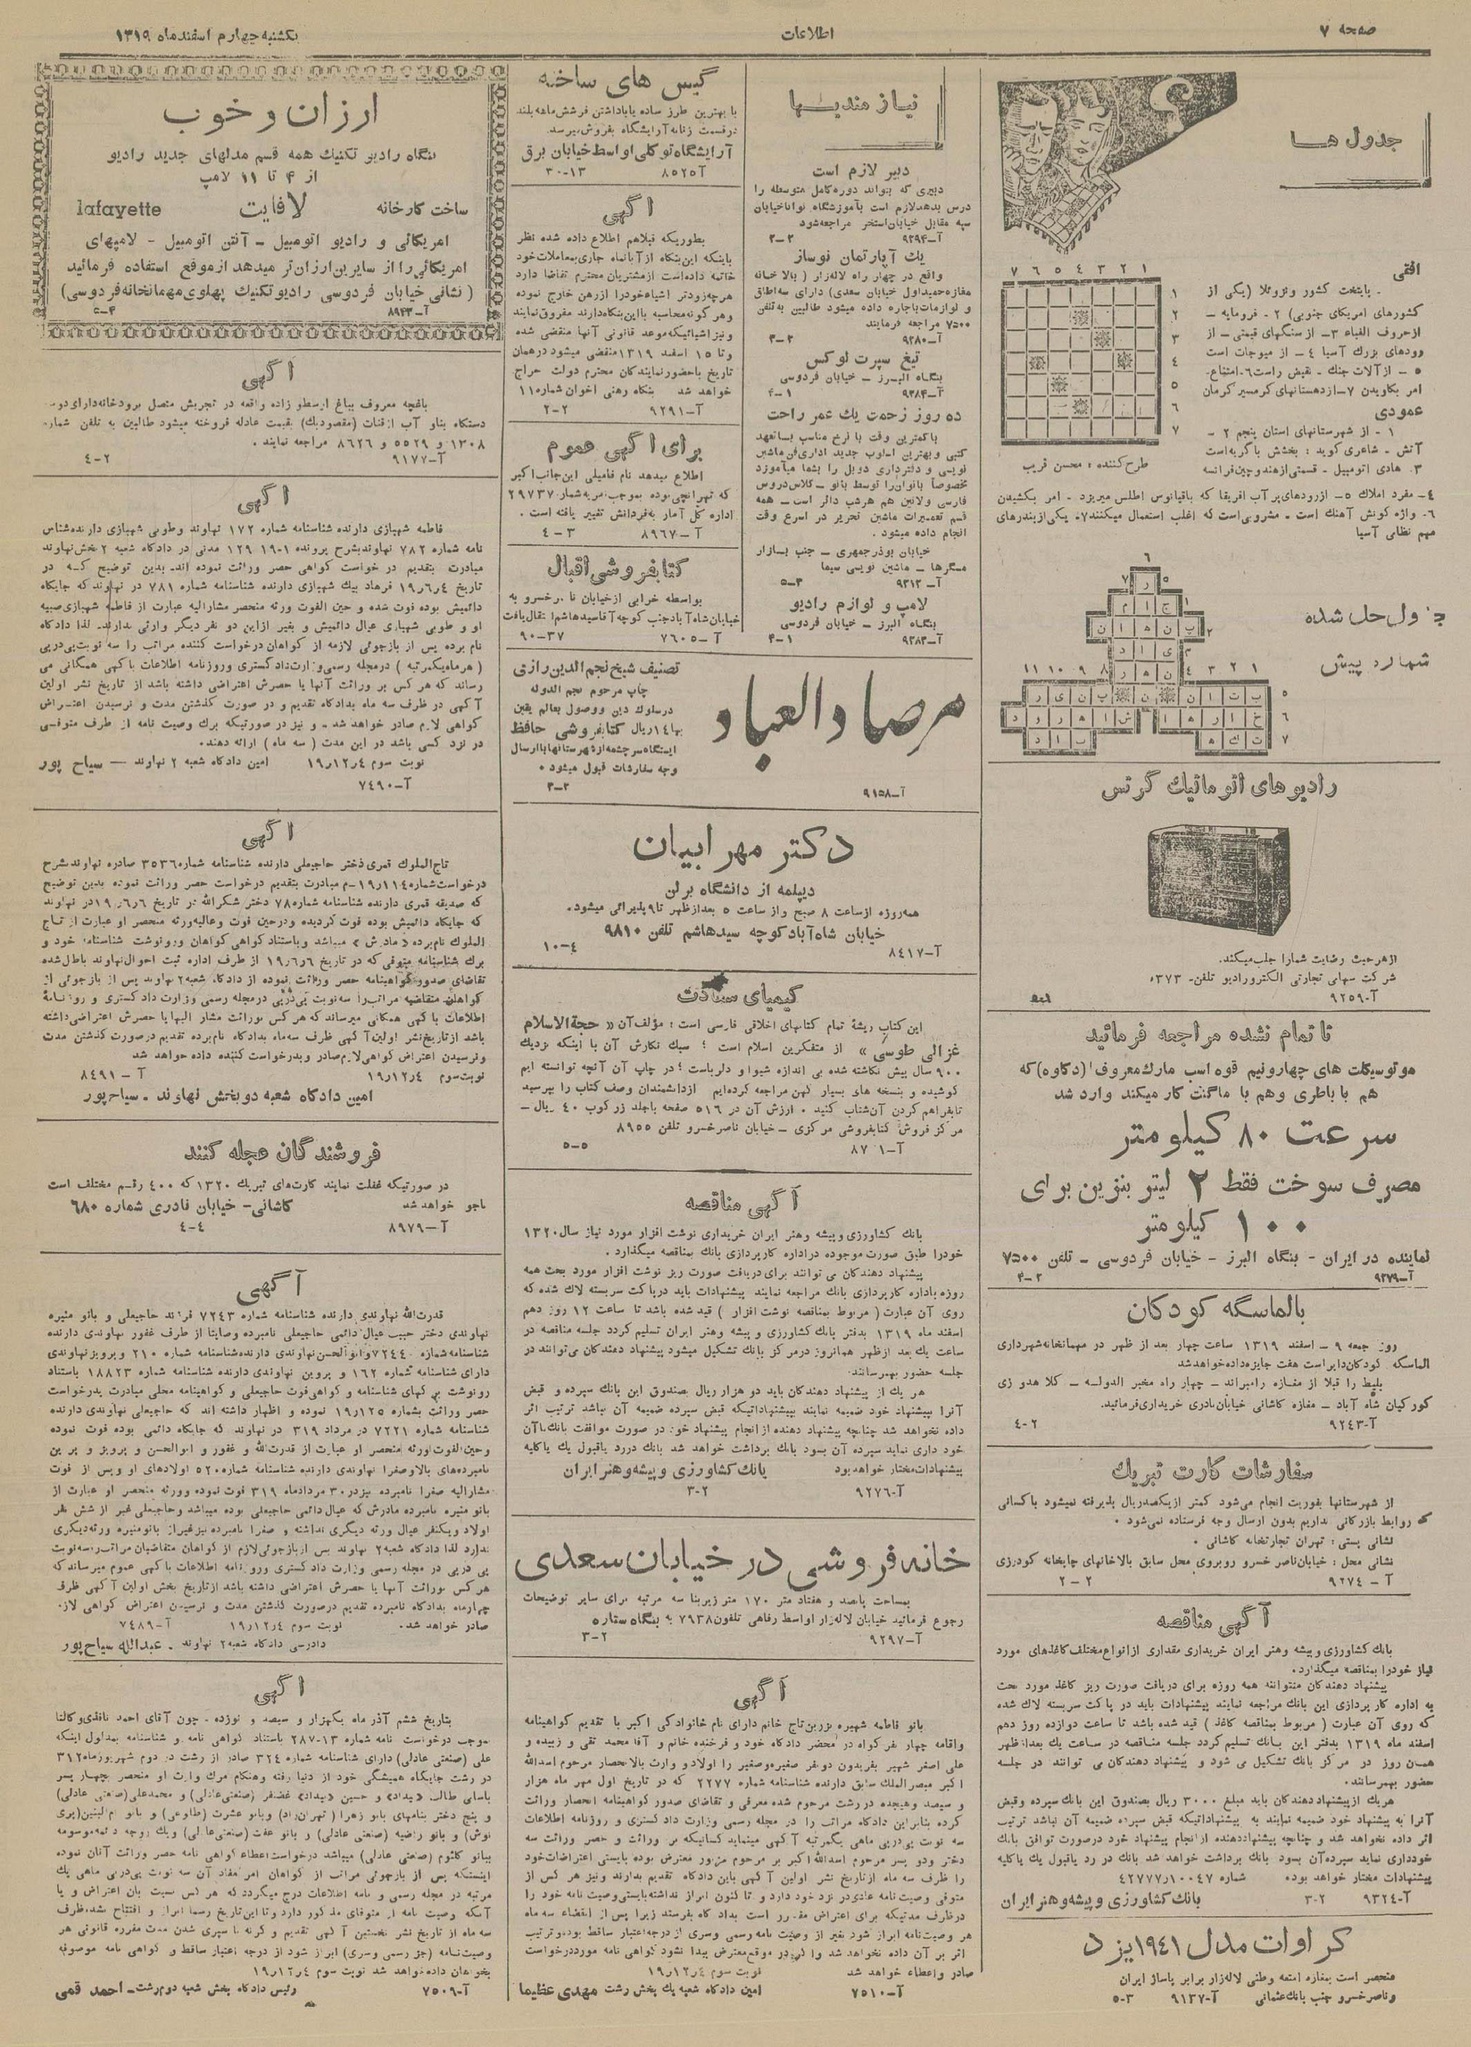 صفحه ۷
اطلاعات
یکشنبه چهارم اسفندماه ۱۳۱۹
جدول ها
افقی
پایتخت کشور ونزوئلا (یکی از
کشورهای امریکای جنوبی) ۲ - فرومایه -
ازحروف الفباء ۳- از سنگهای قیمتی - از
رودهای بزرک آسیا ٤- از میوجات است
عمودی
۱ - از شهرستانهای استان پنجم ۲ -
آتش - شاعری کوید: بخشش باگربه‌است
۳- هادی اتومبیل - قسمتی ازهندوچین فرانسه
طرح کننده: محسن قریب
٤- مفرد املاک ۵- ازرودهای پر آب افریقا که باقیانوس اطلس میریزد - امر بکشیدن
۶- واژه کونش آهنک است - مشروبی است که اغلب استعمال میکنند ۷- یکی ازبندرهای
مهم نظامی آسیا
جدول حل شده
شماره پیش
رادیوهای اتوماتیک گرتس
ازهرحیث رضایت شمارا جلب میکند.
شرکت سهامی تجارتی الکترورادیو تلفن-
آ-۹۲۵۹
تا تمام نشده مراجعه فرمائید
موتوسیکلت های چهارونیم قوه اسب مارک معروف (دکاوه) که
هم با باطری وهم با ماگنت کار میکند وارد شد
سرعت ۸۰ کیلومتر
مصرف سوخت فقط ۲ لیتر بنزین برای
۱۰۰ کیلومتر
نماینده در ایران - بنگاه البرز - خیابان فردوسی - تلفن ۷۵۰۰
آ-۹۲۷۹ ۲-۴
بالماسگه کودکان
روز جمعه ۹ - اسفند ۱۳۱۹ ساعت چهار بعد از ظهر در مهمانخانه شهرداری
بالماسکه کودکان دایر است هفت جایزه داده خواهد شد
بلیط را قبلا از مغازه رامبراند - چهار راه مخبر الدوله - کلاهدوزی
کورکیان شاه آباد - مغازه کاشانی خیابان نادری خریداری فرمائید.
آ-۹۲۴۳ ۲-٤
سفارشات کارت تبریک
از شهرستانها بفوریت انجام می‌شود کمتر از یکصد ریال پذیرفته نمیشود باکسانی
که روابط بازرکانی نداریم بدون ارسال وجه فرستاده نمی‌شود.
نشانی پستی: تهران تجارتخانه کاشانی.
نشانی محل: خیابان ناصرخسرو روبروی محل سابق بالاخانهای چاپخانه کودرزی
آ - ۹۲۷۴ ۲ - ۲
آگهی مناقصه
بانک کشاورزی و پیشه و هنر ایران خریداری مقداری از انواع مختلف کاغذهای مورد
نیاز خودرا بمناقصه میگذارد.
پیشنهاد دهندگان میتوانند همه روزه برای دریافت صورت ریز کاغذ مورد بحث
به اداره کارپردازی این بانک مراجعه نمایند پیشنهادات باید در پاکت سربسته لاک شده
که روی آن عبارت (مربوط بمناقصه کاغذ) قید شده باشد تا ساعت دوازده روز دهم
اسفند ماه ۱۳۱۹ بدفتر این بانک تسلیم گردد جلسه مناقصه در ساعت یک بعدازظهر
همان روز در مرکز بانک تشکیل می شود و پیشنهاد دهندگان می توانند در جلسه
حضور بهمرسانند.
هریک ازپیشنهاد دهندگان باید مبلغ ۳۰۰۰ ریال بصندوق این بانک سپرده وقبض
آنرا به پیشنهاد خود ضمیمه نمایند به پیشنهاداتیکه قبض سپرده ضمیمه آن نباشد ترتیب
اثر داده نخواهد شد و چنانچه پیشنهاددهنده ازانجام پیشنهاد خود درصورت توافق بانک
خودداری نماید سپرده‌آن بسود بانک برداشت خواهد شد بانک در رد یاقبول یک یاکلیه
پیشنهادات مختار خواهد بود شماره ۴۲۷۷۷ر۱۰۰۴۷
آ-۹۳۲۴ ۲-۳ بانک کشاورزی و پیشه و هنر ایران
کراوات مدل ۱۹۴۱ یزد
منحصر است بمغازه امتعه وطنی لاله‌زار برابر پاساژ ایران
وناصرخسرو جنب بانک عثمانی آ-۹۱۳۷ ۳-۵
نیازمندیها
دبیر لازم است
دبیری که بتواند دوره کامل متوسطه را
درس بدهد لازم است بآموزشگاه نوانا خیابان
سپه مقابل خیابان استخر مراجعه شود
آ-۹۲۹۴ ۲-۲
یک آپارتمان نوساز
واقع در چهار راه لاله‌زار (بالاخانه
مغازه حمید اول خیابان سعدی) دارای سه اطاق
و لوازمات باجاره داده میشود طالبین به تلفن
۷۵۰۰ مراجعه فرمایند
آ-۹۲۸۰ ۲-۳
تیغ سپرت لوکس
بنگاه البرز - خیابان فردوسی
آ-۹۲۸۴ ۱-۴
ده روز زحمت یک عمر راحت
باکمترین وقت با نرخ مناسب بساتعهد
کتبی و بهترین اسلوب جدید اداری فن ماشین
نویسی و دفترداری دوبل را بشما میآموزد
مخصوصاً بانوان را توسط بانو - کلاس دروس
فارسی ولاتین هم هرشب دائر است - همه
قسم تعمیرات ماشین تحریر در اسرع وقت
انجام داده میشود.
خیابان بوذرجمهری - جنب بازار
مسگرها - ماشین نویسی سیما
آ-۹۳۱۲ ۳-۵
لامپ و لوازم رادیو
بنگاه البرز - خیابان فردوسی
آ-۹۲۸۳ ۱-۴
گیس های ساخته
با بهترین طرز ساده باباداشتن فرشش ماهه بلند
درقسمت زنانه آرایشگاه بفروش میرسد.
آرایشگاه توکلی اواسط خیابان برق
آ-۸۵۲۵ ۱۳-۳۰
آگهی
بطوریکه قبلاهم اطلاع داده شده نظر
باینکه این بنگاه از آبانماه جاری بمعاملات خود
خاتمه داده‌است ازمشتریان محترم تقاضا دارد
هرچه زودتر اشیاء خودرا ازرهن خارج نموده
وهرکونه محاسبه بااین بنگاه دارند مفروق نمایند
ونیز اشیائیکه موعد قانونی آنها منقضی شده
وتا ۱۵ اسفند ۱۳۱۹ منقضی میشود درهمان
تاریخ باحضور نمایندکان محترم دولت حراج
خواهد شد بنگاه رهنی اخوان شماره ۱۱
آ-۹۲۹۱ ۲-۲
برای آگهی عموم
اطلاع میدهد نام فامیلی اینجانب اکبر
که تهرانچی بوده بموجب نمره شماره ۲۹۷۳۷
اداره کل آمار به فردانش تغییر یافته است.
آ-۸۹۶۷ ۳-٤
کتابفروشی اقبال
بواسطه خرابی ازخیابان ناصرخسرو به
خیابان شاه آباد جنب کوچه آقا سیدهاشم انتقال یافت
آ-۷۶۰۵ ۳۷-۹۰
مرصاد العباد
تصنیف شیخ نجم الدین رازی
چاپ مرحوم نجم الدوله
درسلوک دین ووصول بعالم یقین
بها ۱۴ ریال کتابفروشی حافظ
ایستگاه سرچشمه ازشهرستانها باارسال
وجه سفارشات قبول میشود.
آ-۹۱۵۸ ۲-۳
دکتر مهرابیان
دیپلمه از دانشگاه برلن
همه‌روزه ازساعت ۸ صبح و از ساعت ۵ بعدازظهر تا ۹ پذیرائی میشود.
خیابان شاه‌آباد کوچه سیدهاشم تلفن ۹۸۱۰
آ-۸۴۱۷ ٤-۱۰
کیمیای سعادت
این کتاب ریشهٔ تمام کتابهای اخلاقی فارسی است؛ مؤلف‌آن «حجةالاسلام
غزالی طوسی» از متفکرین اسلام است؛ سبک نگارش آن با اینکه نزدیک
۹۰۰ سال پیش نکاشته شده بی اندازه شیوا و دلرباست؛ در چاپ آن آنچه توانسته ایم
کوشیده و بنسخه های بسیار کهن مراجعه کرده‌ایم ازدانشمندان وصف کتاب را بپرسید
تابفراهم کردن آن‌شتاب کنید. ارزش آن در ۵۱۶ صفحه باجلد زرکوب ۴۰ ریال-
مرکز فروش کتابفروشی مرکزی - خیابان ناصرخسرو تلفن ۸۹۵۵
آ-۸۷۰۱ ۵-۵
آگهی مناقصه
بانک کشاورزی و پیشه وهنر ایران خریداری نوشت افزار مورد نیاز سال ۱۳۲۰
خودرا طبق صورت موجوده دراداره کارپردازی بانک بمناقصه میگذارد.
پیشنهاد دهندکان می توانند برای دریافت صورت ریز نوشت افزار مورد بحث همه
روزه باداره کارپردازی بانک مراجعه نمایند پیشنهادات باید درپاکت سربسته لاک شده که
روی آن عبارت (مربوط بمناقصه نوشت افزار) قید شده باشد تا ساعت ۱۲ روز دهم
اسفند ماه ۱۳۱۹ بدفتر بانک کشاورزی و پیشه وهنر ایران تسلیم گردد جلسه مناقصه در
ساعت یک بعد ازظهر همانروز درمرکز بانک تشکیل میشود پیشنهاد دهندکان می‌توانند در
جلسه حضور بهمرسانند.
هر یک از پیشنهاد دهندکان باید دو هزار ریال بصندوق این بانک سپرده و قبض
آنرا بپیشنهاد خود ضمیمه نمایند بپیشنهاداتیکه قبض سپرده ضمیمه آن نباشد ترتیب اثر
داده نخواهد شد چنانچه پیشنهاد دهنده از انجام پیشنهاد خود در صورت موافقت بانک باآن
خود داری نماید سپرده آن بسود بانک برداشت خواهد شد بانک دررد یاقبول یک یاکلیه
پیشنهادات مختار خواهد بود بانک کشاورزی و پیشه وهنر ایران
آ-۹۲۷۶ ۲-۳
خانه فروشی در خیابان سعدی
بمساحت پانصد و هفتاد متر ۱۷۰ متر زیربنا سه مرتبه برای سایر توضیحات
رجوع فرمائید خیابان لاله‌زار اواسط رفاهی تلفون ۷۹۳۸ به بنگاه ستاره
آ-۹۲۹۷ ۲-۳
آگهی
علی اصغر شهیر بفریدون دونفر صغیره‌وصغیر را اولاد و وارث بالانحصار مرحوم اسدالله
اکبر مبصرالملک سابق دارنده شناسنامه شماره ۲۲۷۷ که در تاریخ اول مهر ماه هزار
و سیصد وهیجده در رشت مرحوم شده معرفی و تقاضای صدور کواهینامه انحصار وراثت
کرده بنابراین دادکاه مراتب را در مجله رسمی وزارت دادکستری و روزنامه اطلاعات
سه نوبت پی‌درپی ماهی یکمرتبه آکهی مینماید کسانیکه بر وراثت و حصر وراثت سه
دختر ودو پسر مرحوم اسدالله اکبر بر مرحوم مزبور معترض بوده بایستی اعتراضات خود
را ظرف سه ماه ازتاریخ نشر اولین آکهی باین دادکاه تقدیم بدارند ونیز هر کس از
متوفی وصیت نامه عادی‌در نزد خود دارد و تا کنون ابراز نداشته بایستی وصیت نامه خود را
درظرف مدتیکه برای اعتراض مقرر است بداد کاه بفرستد زیرا پس از انقضاء سه ماه
هر وصیت‌نامه ابراز شود بغیر از وصیت نامه رسمی وسری از درجه اعتبار ساقط بوده وترتیب
اثر بر آن داده نخواهد شد
صادر واعطاء خواهد شد نوبت سوم ۴ر۱۲ر۱۹
آ-۷۵۱۰ امین دادگاه شعبه یک بخش رشت مهدی عظیما
ارزان و خوب
بنگاه رادیو تکنیک همه قسم مدلهای جدید رادیو
از ۴ تا ۱۱ لامپ
ساخت کارخانه لافایت lafayette
امریکائی و رادیو اتومبیل - آنتن اتومبیل - لامپهای
امریکائی را از سایرین ارزان تر میدهد از موقع استفاده فرمائید
(نشانی خیابان فردوسی رادیو تکنیک پهلوی مهمانخانه فردوسی)
آ-۸۹۴۳ ۴-۵
آگهی
باغچه معروف بباغ ارسطو زاده واقعه در تجریش متصل برودخانه دارای دو
دستگاه بناو آب از قنات (مقصودبک) بقیمت عادله فروخته میشود طالبین به تلفن شماره
۱۳۰۸ و ۵۵۲۹ و ۸۶۲۶ مراجعه نمایند.
آ-۹۱۷۷ ۲-٤
آگهی
فاطمه شهبازی دارنده شناسنامه شماره ۱۷۲ نهاوند وطوبی شهبازی دارنده شناس
نامه شماره ۷۸۲ نهاوند بشرح پرونده ۱۹۰۱-۱۲۹ مدنی در دادگاه شعبه ۲ بخش نهاوند
مبادرت بتقدیم درخواست گواهی حصر وراثت نموده اند- بدین توضیح که در
تاریخ ۴ر۶ر۱۹ فرهاد بیک شهبازی دارنده شناسنامه شماره ۷۸۱ در نهاوند که جایگاه
دائمیش بوده فوت شده و حین الفوت ورثه منحصر مشارالیه عبارت از فاطمه شهبازی صبیه
او و طوبی شهبازی عیال دائمیش و بغیر ازاین دو نفر دیگر وارثی ندارند- لذا دادکاه
نام برده پس از بازجوئی لازمه از کواهان درخواست کننده مراتب را سه نوبت پی‌درپی
(هرماه یکمرتبه) درمجله رسمی وزارت دادکستری وروزنامه اطلاعات باکهی همکانی می
رساند که هر کس بر وراثت آنها یا حصرش اعتراضی داشته باشد از تاریخ نشر اولین
آکهی در ظرف سه ماه بدادکاه تقدیم و در صورت کذشتن مدت و نرسیدن اعتراض
کواهی لازم صادر خواهد شد- و نیز در صورتیکه برک وصیت نامه از طرف متوفی
در نزد کسی باشد در این مدت (سه ماه) ارائه دهند.
نوبت سوم ۴ر۱۲ر۱۹ امین دادکاه شعبه ۲ نهاوند - سیاح پور
آ-۷۴۹۰
آگهی
تاج الملوک قمری دختر حاجیعلی دارنده شناسنامه شماره ۳۵۳۶ صادره نهاوند بشرح
درخواست شماره ۱۱۴ر۱۹-م مبادرت بتقدیم درخواست حصر وراثت نموده بدین توضیح
که صدیقه قمری دارنده شناسنامه شماره ۷۸ دختر شکرالله در تاریخ ۶ر۶ر۱۹ در نهاوند
که جایکاه دائمیش بوده فوت کردیده ودرحین فوت وعالیه‌ورثه منحصر او عبارت از تاج
الملوک نام‌برده «مادرش» میباشد وباستناد کواهی کواهان ورونوشت شناسنامه خود و
برک شناسنامه متوفی که در تاریخ ۶ر۶ر۱۹ از طرف اداره ثبت احوال نهاوند باطل شده
تقاضای صدور کواهینامه حصر وراثت نموده از دادکاه شعبه ۲ نهاوند پس از بازجوئی از
کواهان متقاضیه مراتب را سه نوبت پی‌درپی درمجله رسمی وزارت دادکستری و روزنامهٔ
اطلاعات با کهی همکانی میرساند که هر کس بوراثت مشار الیها یا حصرش اعتراضی داشته
باشد ازتاریخ نشر اولین آکهی ظرف سه‌ماه بدادکاه نام‌برده تقدیم درصورت کذشتن مدت
ونرسیدن اعتراض کواهی لازم صادر وبدرخواست کننده داده خواهد شد
نوبت سوم ۴ر۱۲ر۱۹ آ-۸۴۹۱
امین دادگاه شعبه دو بخش نهاوند - سیاح پور
فروشندگان عجله کنند
در صورتیکه غفلت نمایند کارت‌های تبریک ۱۳۲۰ که ۴۰۰ رقم مختلف است
ناجو خواهد شد کاشانی- خیابان نادری شماره ۶۸۰
آ-۸۹۷۹ ٤-٤
آگهی
قدرت‌الله نهاوندی دارنده شناسنامه شماره ۷۲۴۳ فرزند حاجیعلی و بانو منیره
نهاوندی دختر حبیب عیال دائمی حاجیعلی نامبرده وصایتا از طرف غفور نهاوندی دارنده
شناسنامه شماره ۷۲۴۴ وابوالحسن نهاوندی دارنده شناسنامه شماره ۲۱۰ وپرویز نهاوندی
دارای شناسنامه شماره ۱۶۲ و پروین نهاوندی دارنده شناسنامه شماره ۱۸۸۲۳ باستناد
رونوشت برکهای شناسنامه و کواهی فوت حاجیعلی و کواهینامه محلی مبادرت بدرخواست
حصر وراثت بشماره ۱۲۵ر۱۹ نموده و اظهار داشته‌اند که حاجیعلی نهاوندی دارنده
شناسنامه شماره ۷۲۲۱ در مرداد ۳۱۹ در نهاوند که جایکاه دائمی بوده فوت نموده
وحین الفوت ورثه منحصر او عبارت از قدرت‌الله و غفور و ابوالحسن و پرویز و پروین
نامبرده‌های بالا وصفرا نهاوندی دارنده شناسنامه شماره ۵۲۰ اولادهای او و پس از فوت
مشارالیه صفرا نامبرده نیزدر ۳۰ مردادماه ۳۱۹ فوت نموده وورثه منحصر او عبارت از
بانو منیره نامبرده مادرش که عیال دائمی حاجیعلی بوده میباشد وحاجیعلی غیر از شش نفر
اولاد ویکنفر عیال ورثه دیگری نداشته و صفرا نامبرده نیزغیراز بانو منیره ورثه‌دیگری
ندارد لذا دادکاه شعبه ۲ نهاوند پس ازبازجوئی لازم از کواهان متقاضیان مراتب راسه نوبت
پی درپی در مجله رسمی وزارت داد کستری وروزنامه اطلاعات با کهی عموم میرساند که
هر کس بوراثت آنها یا حصرش اعتراضی داشته باشد ازتاریخ پخش اولین آکهی ظرف
چهارماه بدادکاه نامبرده تقدیم درصورت کذشتن مدت و نرسیدن اعتراض کواهی لازم
صادر خواهد شد. نوبت سوم ۴ر۱۲ر۱۹ آ-۷۴۸۹
دادرس دادکاه شعبه ۲ نهاوند - عبدالله سیاح پور
آگهی
بتاریخ ششم آذر ماه یکهزار و سیصد و نوزده - چون آقای احمد ناقدی وکالتا
بموجب درخواست نامه شماره ۱۳-۲۸۷ باستناد کواهی نامه و شناسنامه بمدلول اینکه
علی (صنعتی عادلی) دارای شناسنامه شماره ۳۲۴ صادر از رشت در دوم شهریورماه ۳۱۲
در رشت جایکاه همیشگی خود از دنیا رفته وهنکام مرک وارث او منحصر بچهار پسر
باسامی طالب (بیداد) و حسین (بیداد) غضنفر (صنعتی عادلی) و محمدعلی (صنعتی عادلی)
نوش) و بانو راضیه (صنعتی عادلی) و بانو عفت (صنعتی عادلی) ویک زوجه دائمه موسومه
ببانو کلثوم (صنعتی عادلی) میباشد درخواست اعطاء کواهی نامه حصر وراثت آنان نموده
مرتبه در مجله رسمی و نامه اطلاعات درج میکردد که هر کس نسبت بان اعتراض و یا
آنکه وصیت نامه از متوفای مذکور دارد وتا این تاریخ رسما ابراز و افتتاح نشده، ظرف
سه ماه از تاریخ نشر نخستین آ کهی تقدیم و کرنه با سپری شدن مدت مقرره قانونی هر
وصیت‌نامه (جز رسمی وسری) ابراز شود از درجه اعتبار ساقط و کواهی نامه موصوفه
بخواهان داده خواهد شد نوبت سوم ۴ر۱۲ر۱۹
آ-۷۵۰۹ رئیس دادکاه بخش شعبه دوم رشت- احمد قمی